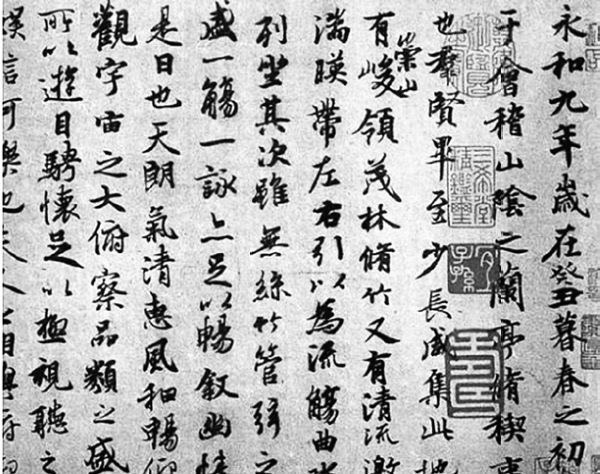 永和九年歲在癸丑暮春之初
于會稽山陰之蘭亭脩稧事
也羣賢畢至少長咸集此地
有崇山峻領茂林脩竹又有清流激
湍暎帶左右引以為流觴曲水
列坐其次雖無絲竹管弦之
盛一觴一詠亦足以暢敘幽情
是日也天朗氣清惠風和暢仰
觀宇宙之大俯察品類之盛
所以遊目騁懷足以極視聽之
娛信可樂也夫人之相與俯
三希堂精鑑璽
宜子孫